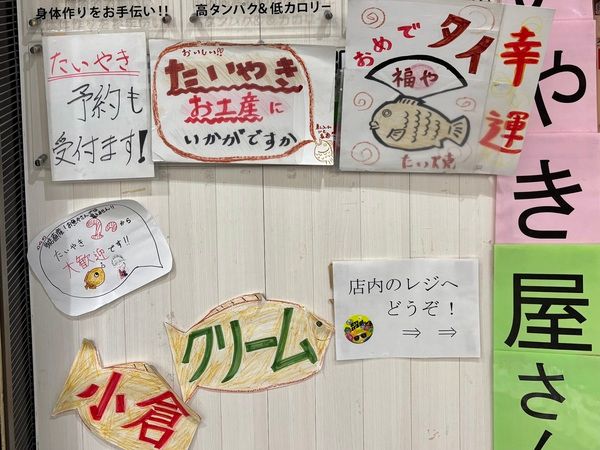 身体作りをお手伝い!!
高タンパク&低カロリー
たいやき
予約も
受付ます!
おいしい!!
たいやき
お土産に
いかがですか
おめで
タイ
幸運
福や
やき屋さん
から
たいやき
大歓迎です!!
クリーム
小倉
店内のレジへ
どうぞ!
⇒ ⇒